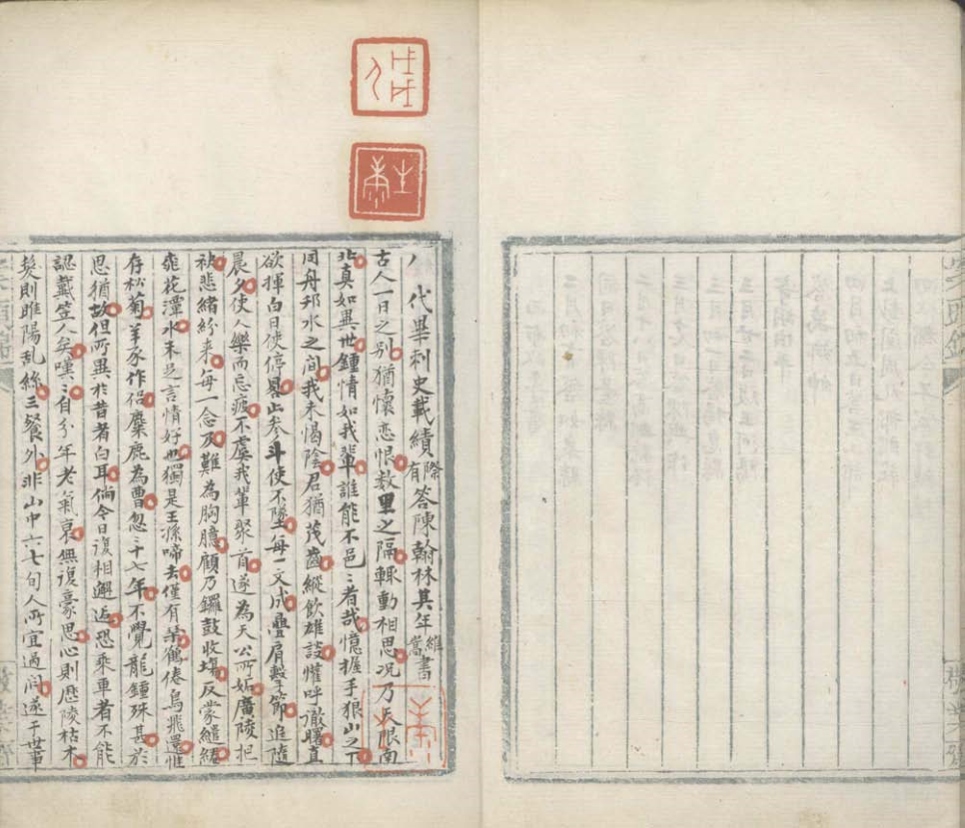 代畢刺史載績有際答陳翰林其年維嵩書
古人一日之别猶懷恋恨数里之隔輒動相思况乃天限南
北真如異世鍾情如我輩誰能不邑〻者哉憶握手狼山之下
同舟邗水之间我未愒陰君猶茂齒縱飲雄談懽呼澈曙直
欲揮白日使停晷止参斗使不墜每一文成疊肩擊節追隨
晨夕使人樂而忘疲不虞我輩聚首遂為天公所妬廣陵把
袂悲緒紛来每一念及難為胸臆顧乃鑼鼓收場反蒙繾綣
桃花潭水未足言情好也獨是王孫啼去僅有琹鶴倦鳥飛還惟
存松菊羊豕作侣麋鹿為曹忽〻十七年不覺龍鍾殊甚於
思猶故但所異於昔者白耳倘令日復相邂逅恐乘車者不能
認戴笠人矣嘆〻自分年老氣衰無復豪思心則歷陵枯木
髮則睢陽乱絲三餐外非山中六七旬人所宜過问遂于世事